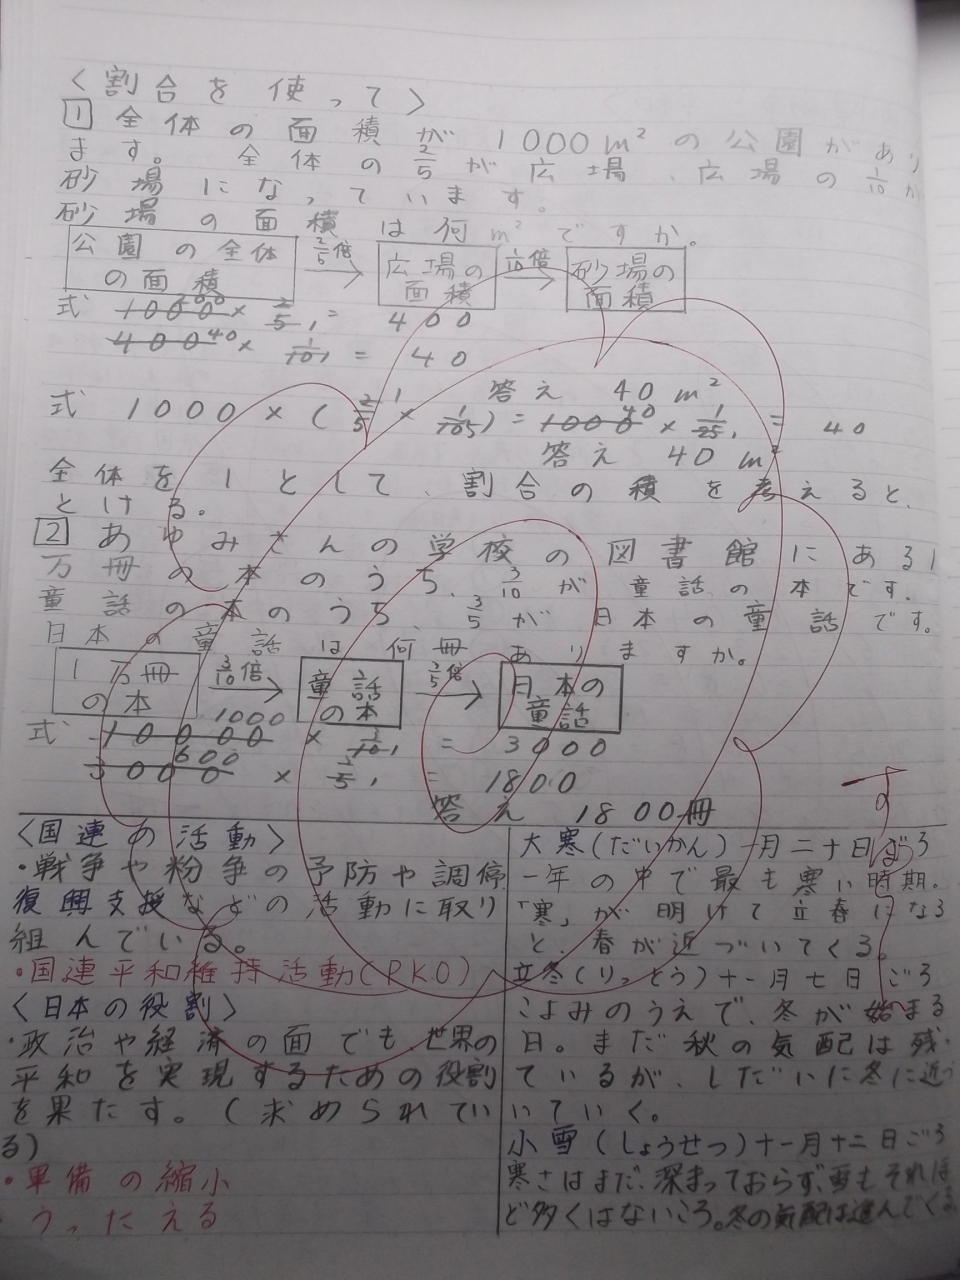 〈割合を使って〉
1 全体の面積が1000m²の公園があり
ます。 全体の2/5が広場、広場の1/10が
砂場になっています。
砂場の面積は何m²ですか。
公園の全体の面積 2/5倍→ 広場の面積 1/10倍→ 砂場の面積
式 1000 × 2/5 = 400
400 × 1/10 = 40
答え 40m²
式 1000×(2/5×1/10)=1000×1/25=40
答え 40m²
全体を1として、割合の積を考えると、
とける。
2 あゆみさんの学校の図書館にある1
万冊の本のうち、3/10が童話の本です。
童話の本のうち、3/5が日本の童話です。
日本の童話は何冊ありますか。
1万冊の本 3/10倍→ 童話の本 3/5倍→ 日本の童話
式 10000 × 3/10 = 3000
3000 × 3/5 = 1800
答え 1800冊
す
〈国連の活動〉
・戦争や紛争の予防や調停
復興支援などの活動に取り
組んでいる。
・国連平和維持活動(PKO)
〈日本の役割〉
・政治や経済の面でも世界の
平和を実現するための役割
を果たす。(求められてい
る)
・軍備の縮小
うったえる
大寒(だいかん)一月二十日ごろ
一年の中で最も寒い時期。
「寒」が明けて立春になる
と、春が近づいてくる。
立冬(りっとう)十一月七日ごろ
こよみのうえで、冬が始まる
日。まだ秋の気配は残っ
ているが、しだいに冬に近づ
いていく。
小雪(しょうせつ)十一月十二日ごろ
寒さはまだ、深まっておらず、雪もそれほ
ど多くはないころ。冬の気配は進んでくる